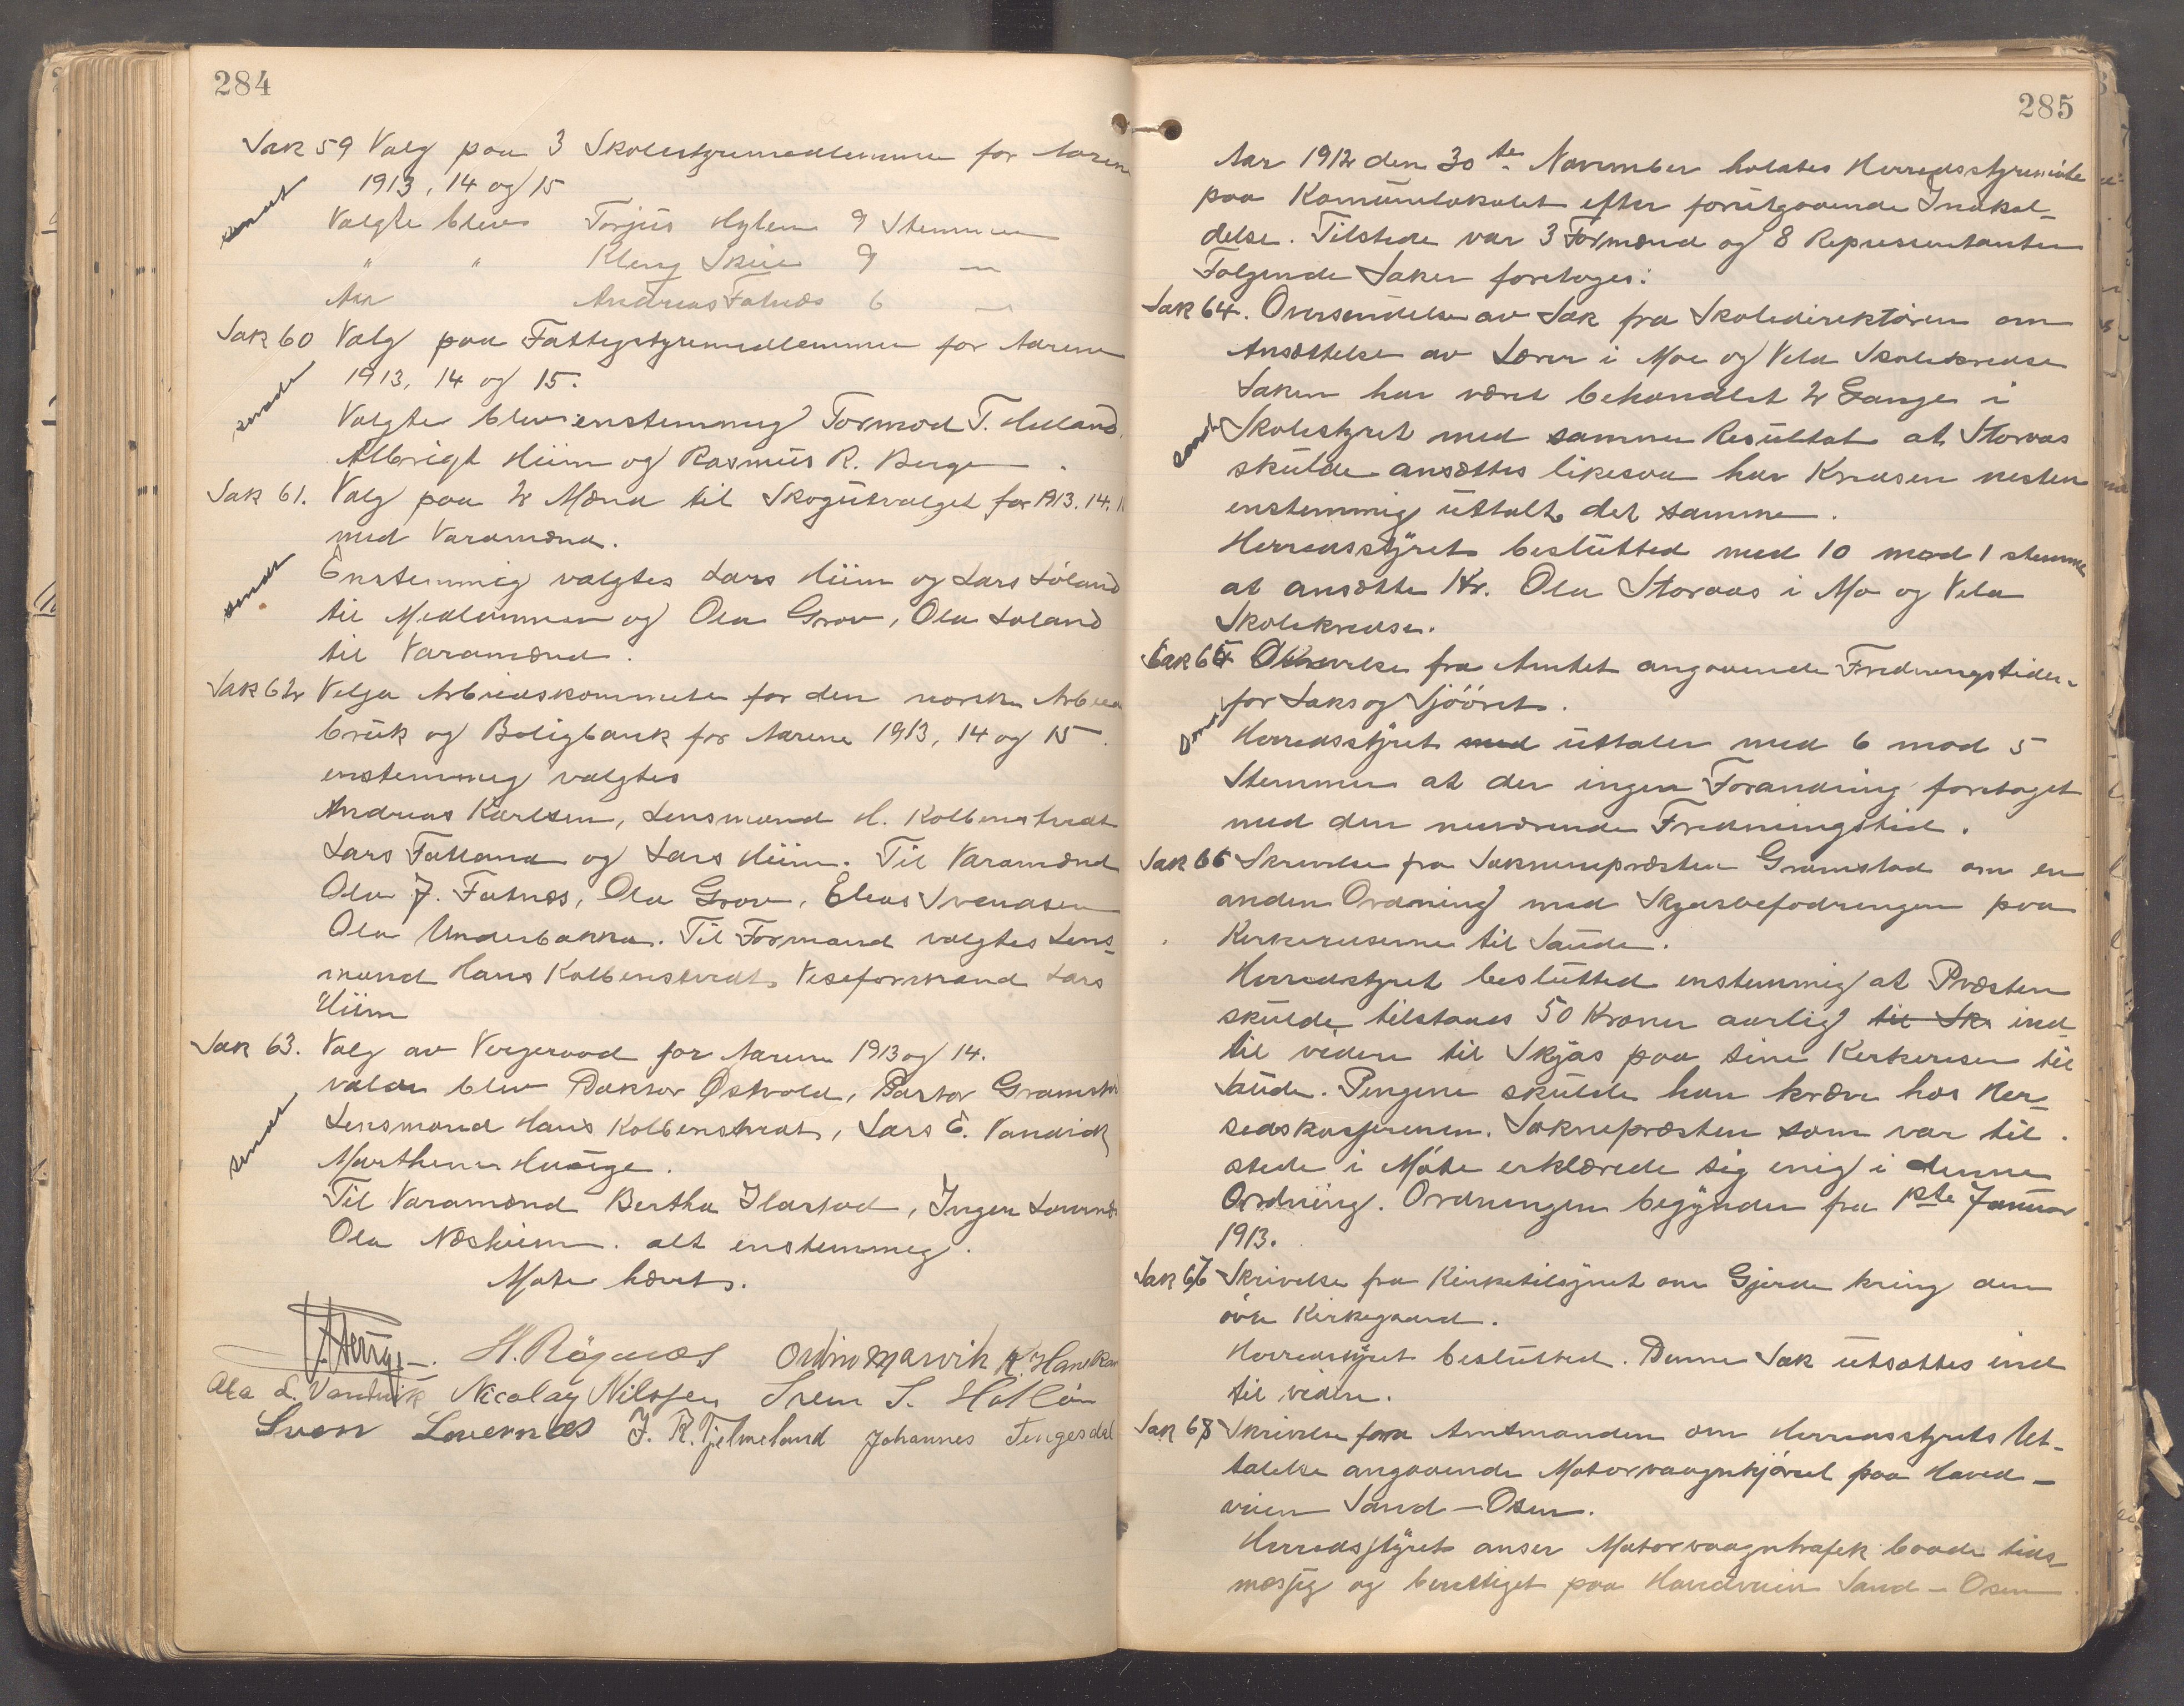 284
Sak 59 Valg paa 3 Skolestyremedlemmer for Aarene
1913, 14 og 15
sendt
Valgte blev Torjus Hylen 9 Stemmer
" " Kleng Skiie 9 —
" Andreas Fatnæs 6 —
Sak 60 Valg paa Fattigstyremedlemmer for Aarene
1913, 14 og 15.
sendt
Valgte blev enstemmig Tormod T. Helland,
Albrigt Hiim og Rasmus R. Berge.
Sak 61. Valg paa 2 Mænd til Skogutvalget for 1913. 14.
med Varamænd.
sendt
Enstemmig valgtes Lars Hiim og Lars Løland
til Medlemmer og Ola Grov, Ola Løland
til Varamænd.
Sak 62 Velja Arbeidskommite for den norske Arbeider
bruk og Boligbank for Aarene 1913, 14 og 15.
enstemmig valgtes
Andreas Karlsen, Lensmand H. Kolbenstvedt
Lars Fatland og Lars Hiim. Til Varamænd
Ola J. Fatnæs, Ola Grov, Elias Svendsen
Ola Underbakka. Til Formand valgtes Lens-
mand Hans Kolbenstvedt, Viseformand Lars
Hiim
Sak 63. Valg av Vergeraad for Aarene 1913 og 14.
valde blev Doktor Østvold, Pastor Gramstad
sendt
Lensmand Hans Kolbenstvedt, Lars E. Vandvik
Marthene Hauge.
Til Varamænd Bertha Ilastad, Inger Lovernæs
Ola Næsheim. alt enstemmig.
Møte hævet.
H. Røgnæs Ordin Marvik K. Hanekam
Ola L. Vandvik Nicolay Nilssen Sven S. Hatløn
Sven Lovernæs J. K. Tjelmeland Johannes Tengesdal
285
Aar 1912 den 30te November holdtes Herredsstyremøte
paa Komunelokalet efter forutgaaende Indkal-
delse. Tilstede var 3 Formænd og 8 Representanter
Følgende Saker foretoges:
Sak 64. Oversendelse av Sak fra Skoledirektøren om
Ansættelse av Lærer i Moe og Vela Skolekredse
Saken har været behandlet 2 Gange i
sendt
Skolestyret med samme Resultat at Storaas
skulde ansættes likesaa har Kredsen nesten
enstemmig uttalt det samme.
Herredsstyret beslutted med 10 mod 1 stemme
at ansætte Hr. Ola Storaas i Mo og Vela
Skolekredse.
Sak 65 Skrivelse fra Amtet angaaende Fredningstiden
for Laks og Sjøøret.
sendt
Herredsstyret med uttaler med 6 mod 5
Stemmer at der ingen Forandring foretaget
med den nuværende Fredningstid.
Sak 66 Skrivelse fra Soknepræsten Gramstad om en
anden Ordning med Skydsbefodringen paa
Kirkereiserne til Saude.
Herredstyret besluttet enstemmig at Præsten
skulde tilstaaes 50 Kroner aarlig til Sk ind
til videre til Skjds paa sine Kirkereiser til
Saude. Pengene skulde han kræve hos Her-
redskassereren. Soknepræsten som var til-
stede i Møte erklærede sig enig i denne
Ordning. Ordningen begynder fra 1ste Januar
1913.
Sak 67 Skrivelse fra Kirketilsynet om Gjerde kring den
øvre Kirkegaard.
Herredstyret besluttet. Denne Sak utsættes ind
til videre.
Sak 68 Skrivelse fra Amtmanden om Herredsstyrets Ut-
talelse angaaende Motorvaagnkjørsel paa Hoved-
veien Sand – Osen.
Herredsstyret anser Motorvaagntrafik baade tids-
mæssig og berettiget paa Hovedveien Sand – Osen